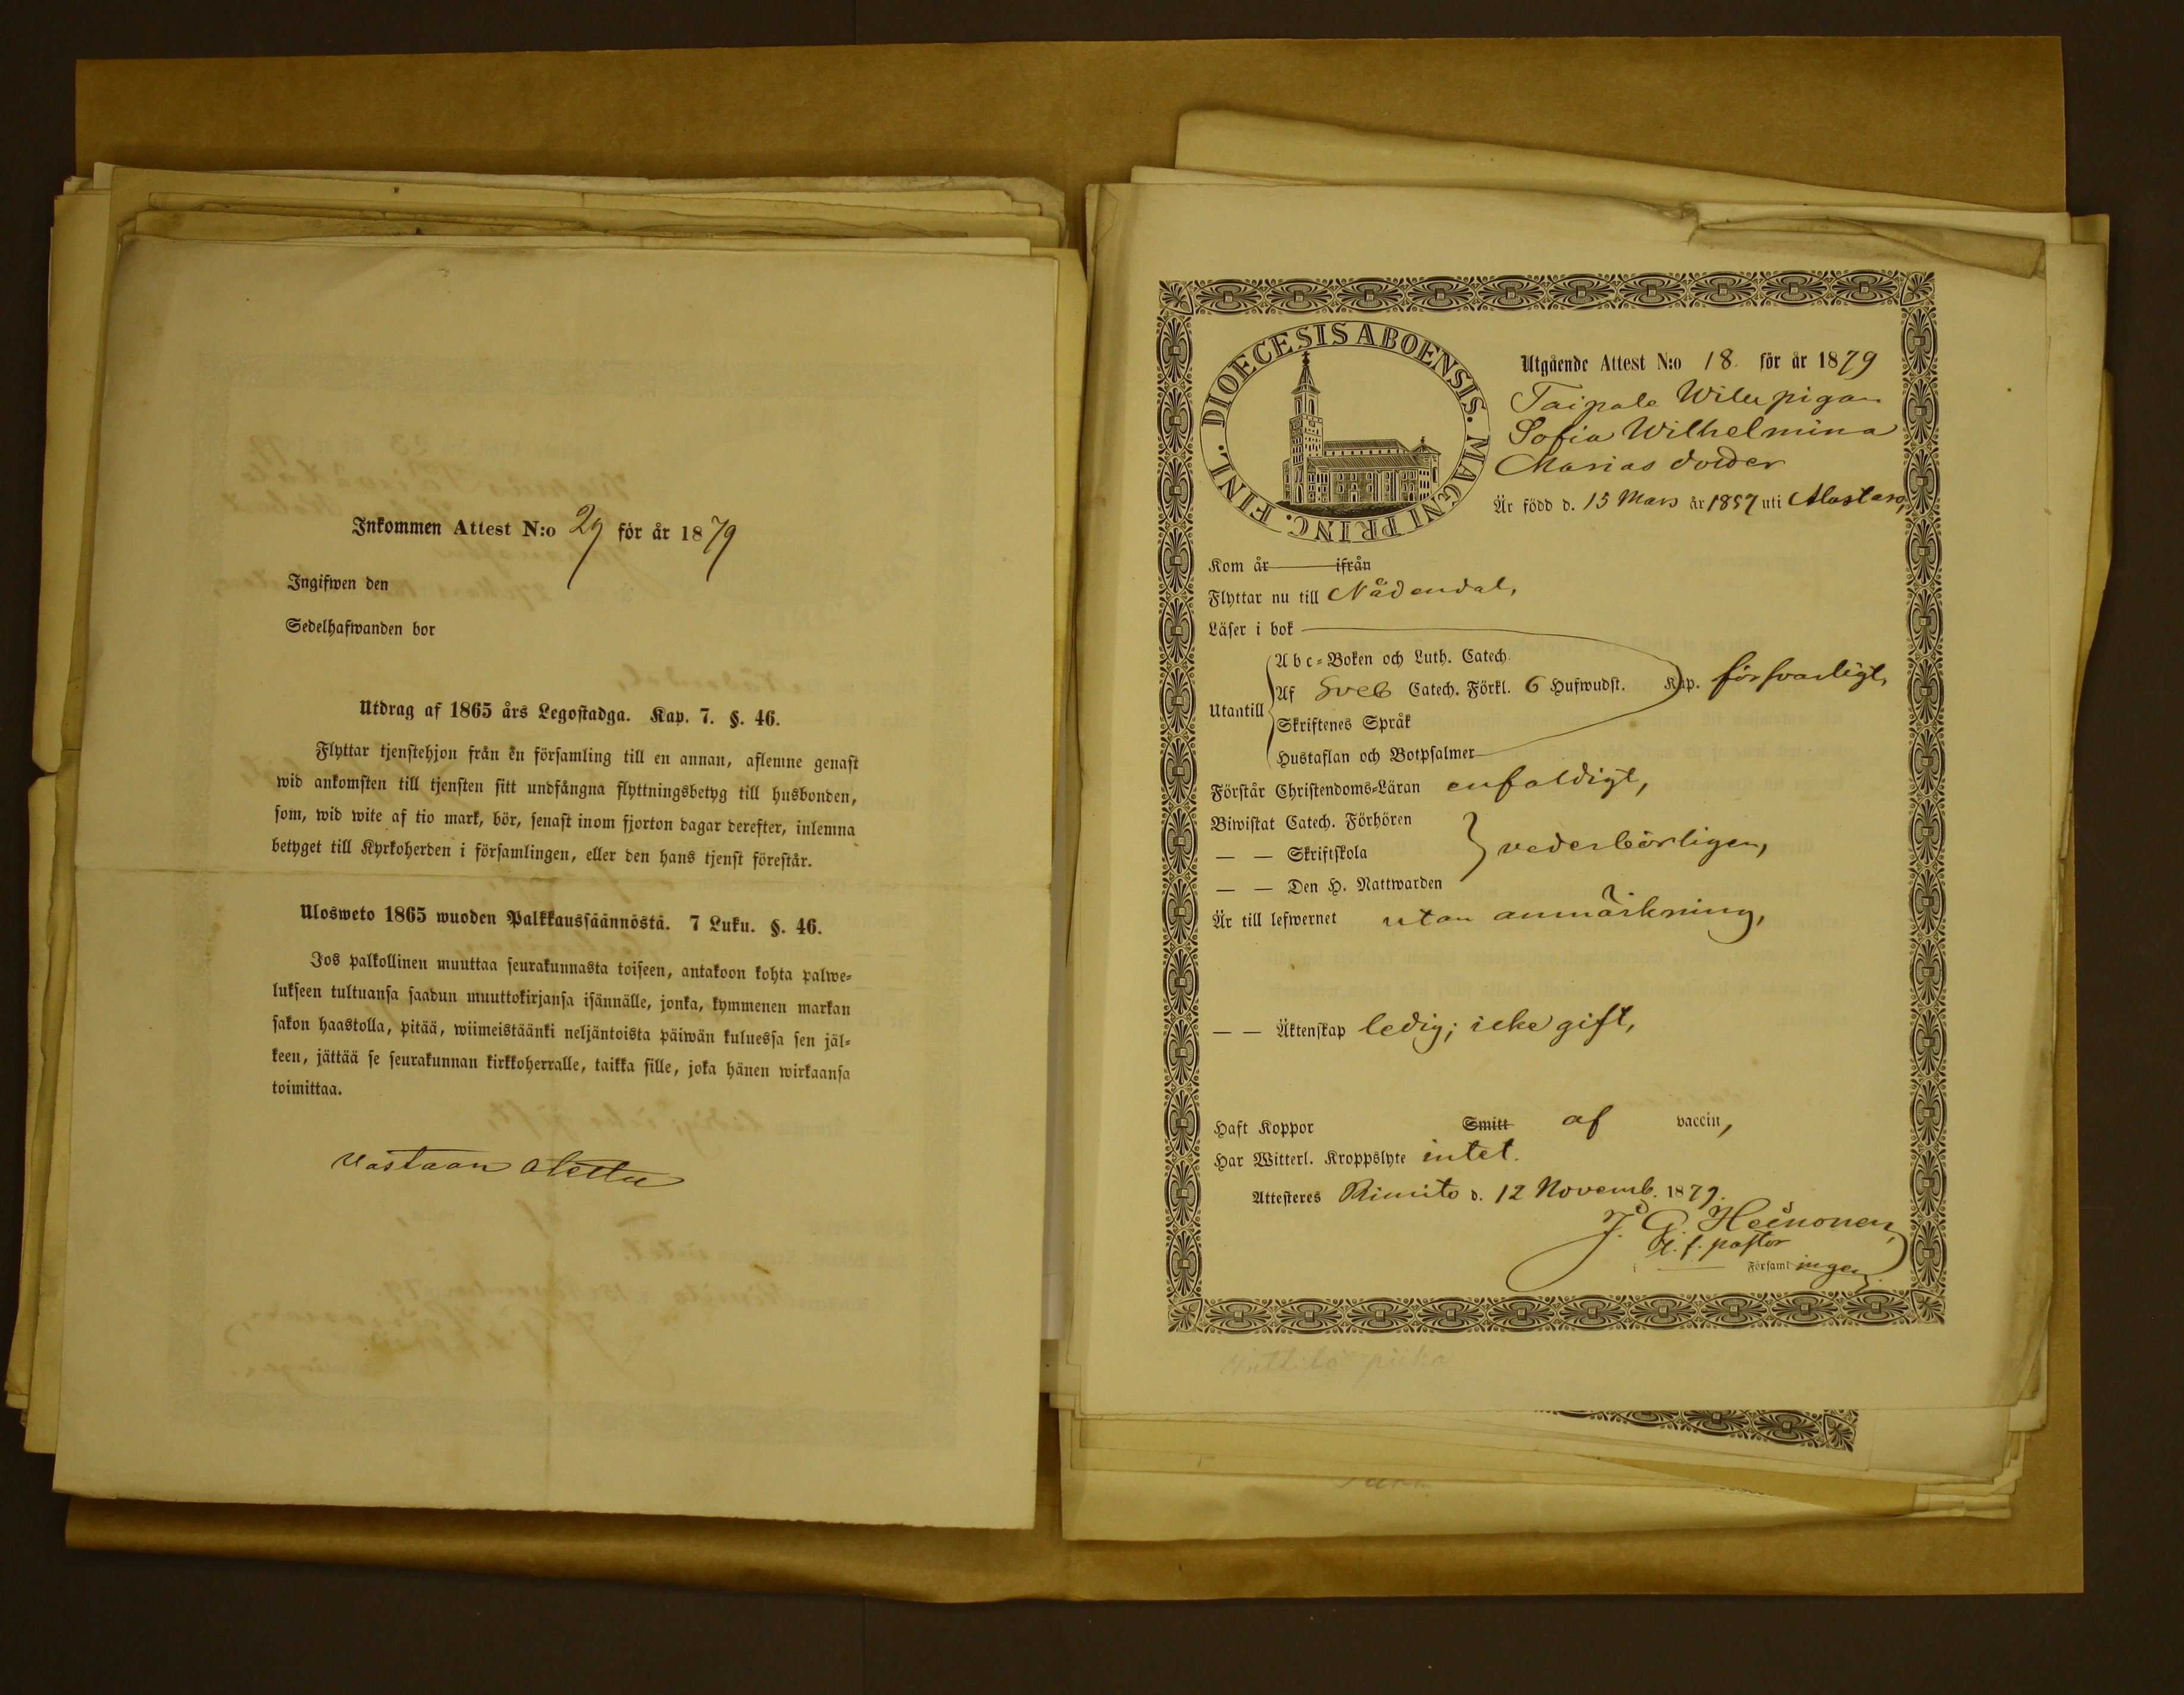 Inkommen Attest N:o 29 för år 1879
Ingifwen den
Sedelhafwanden bor
Utdrag af 1865 års Legostadga. Kap. 7. §. 46.
Flyttar tjenstehjon från en församling till en annan, aflemne genast
wid ankomsten till tjensten sitt undfångna flyttningsbetyg till husbonden,
som, wid wite af tio mark, bör, senast inom fjorton dagar derefter, inlemna
betyget till Kyrkoherden i församlingen, eller den hans tjenst förestår.
Ulosweto 1865 wuoden Palkkaussäännöstä. 7 Luku. §. 46.
Jos palkollinen muuttaa seurakunnasta toiseen, antakoon kohta palwe=
lukseen tultuansa saadun muuttokirjansa isännälle, jonka, kymmenen markan
sakon haastolla, pitää, wiimeistäänki neljäntoista päiwän kuluessa sen jäl=
keen, jättää se seurakunnan kirkkoherralle, taikka sille, joka hänen wirkaansa
toimittaa.
Vastaan otettu
DIOECESIS ABOENSIS. MAGNI PRINC. FINL.
Utgående Attest N:o 18 för år 1879
Taipale pigan
Sofia Wilhelmina
Marias dotter
Är född d. 15 Mars år 1857 uti Alastaro,
Kom år ifrån
Flyttar nu till Nådendal,
Läser i bok
Utantill
Abc=Boken och Luth. Catech.
Af Sveb Catech. Förkl. 6 Hufwudst. Kap. försvarligt,
Skriftenes Språk
Hustaflan och Botpsalmer
Förstår Christendoms=Läran enfaldigt,
Biwistat Catech. Förhören
— — Skriftskola vederbörligen,
— — Den H. Nattwarden
Är till lefwernet utan anmärkning,
— — Äktenskap ledig; icke gift,
Haft Koppor Smitt af vaccin,
Har Witterl. Kroppslyte intet.
Attesteres Rimito d. 12 Novemb. 1879.
J. G. Heinonen,
v. f. pastor
Församlingen.
piika